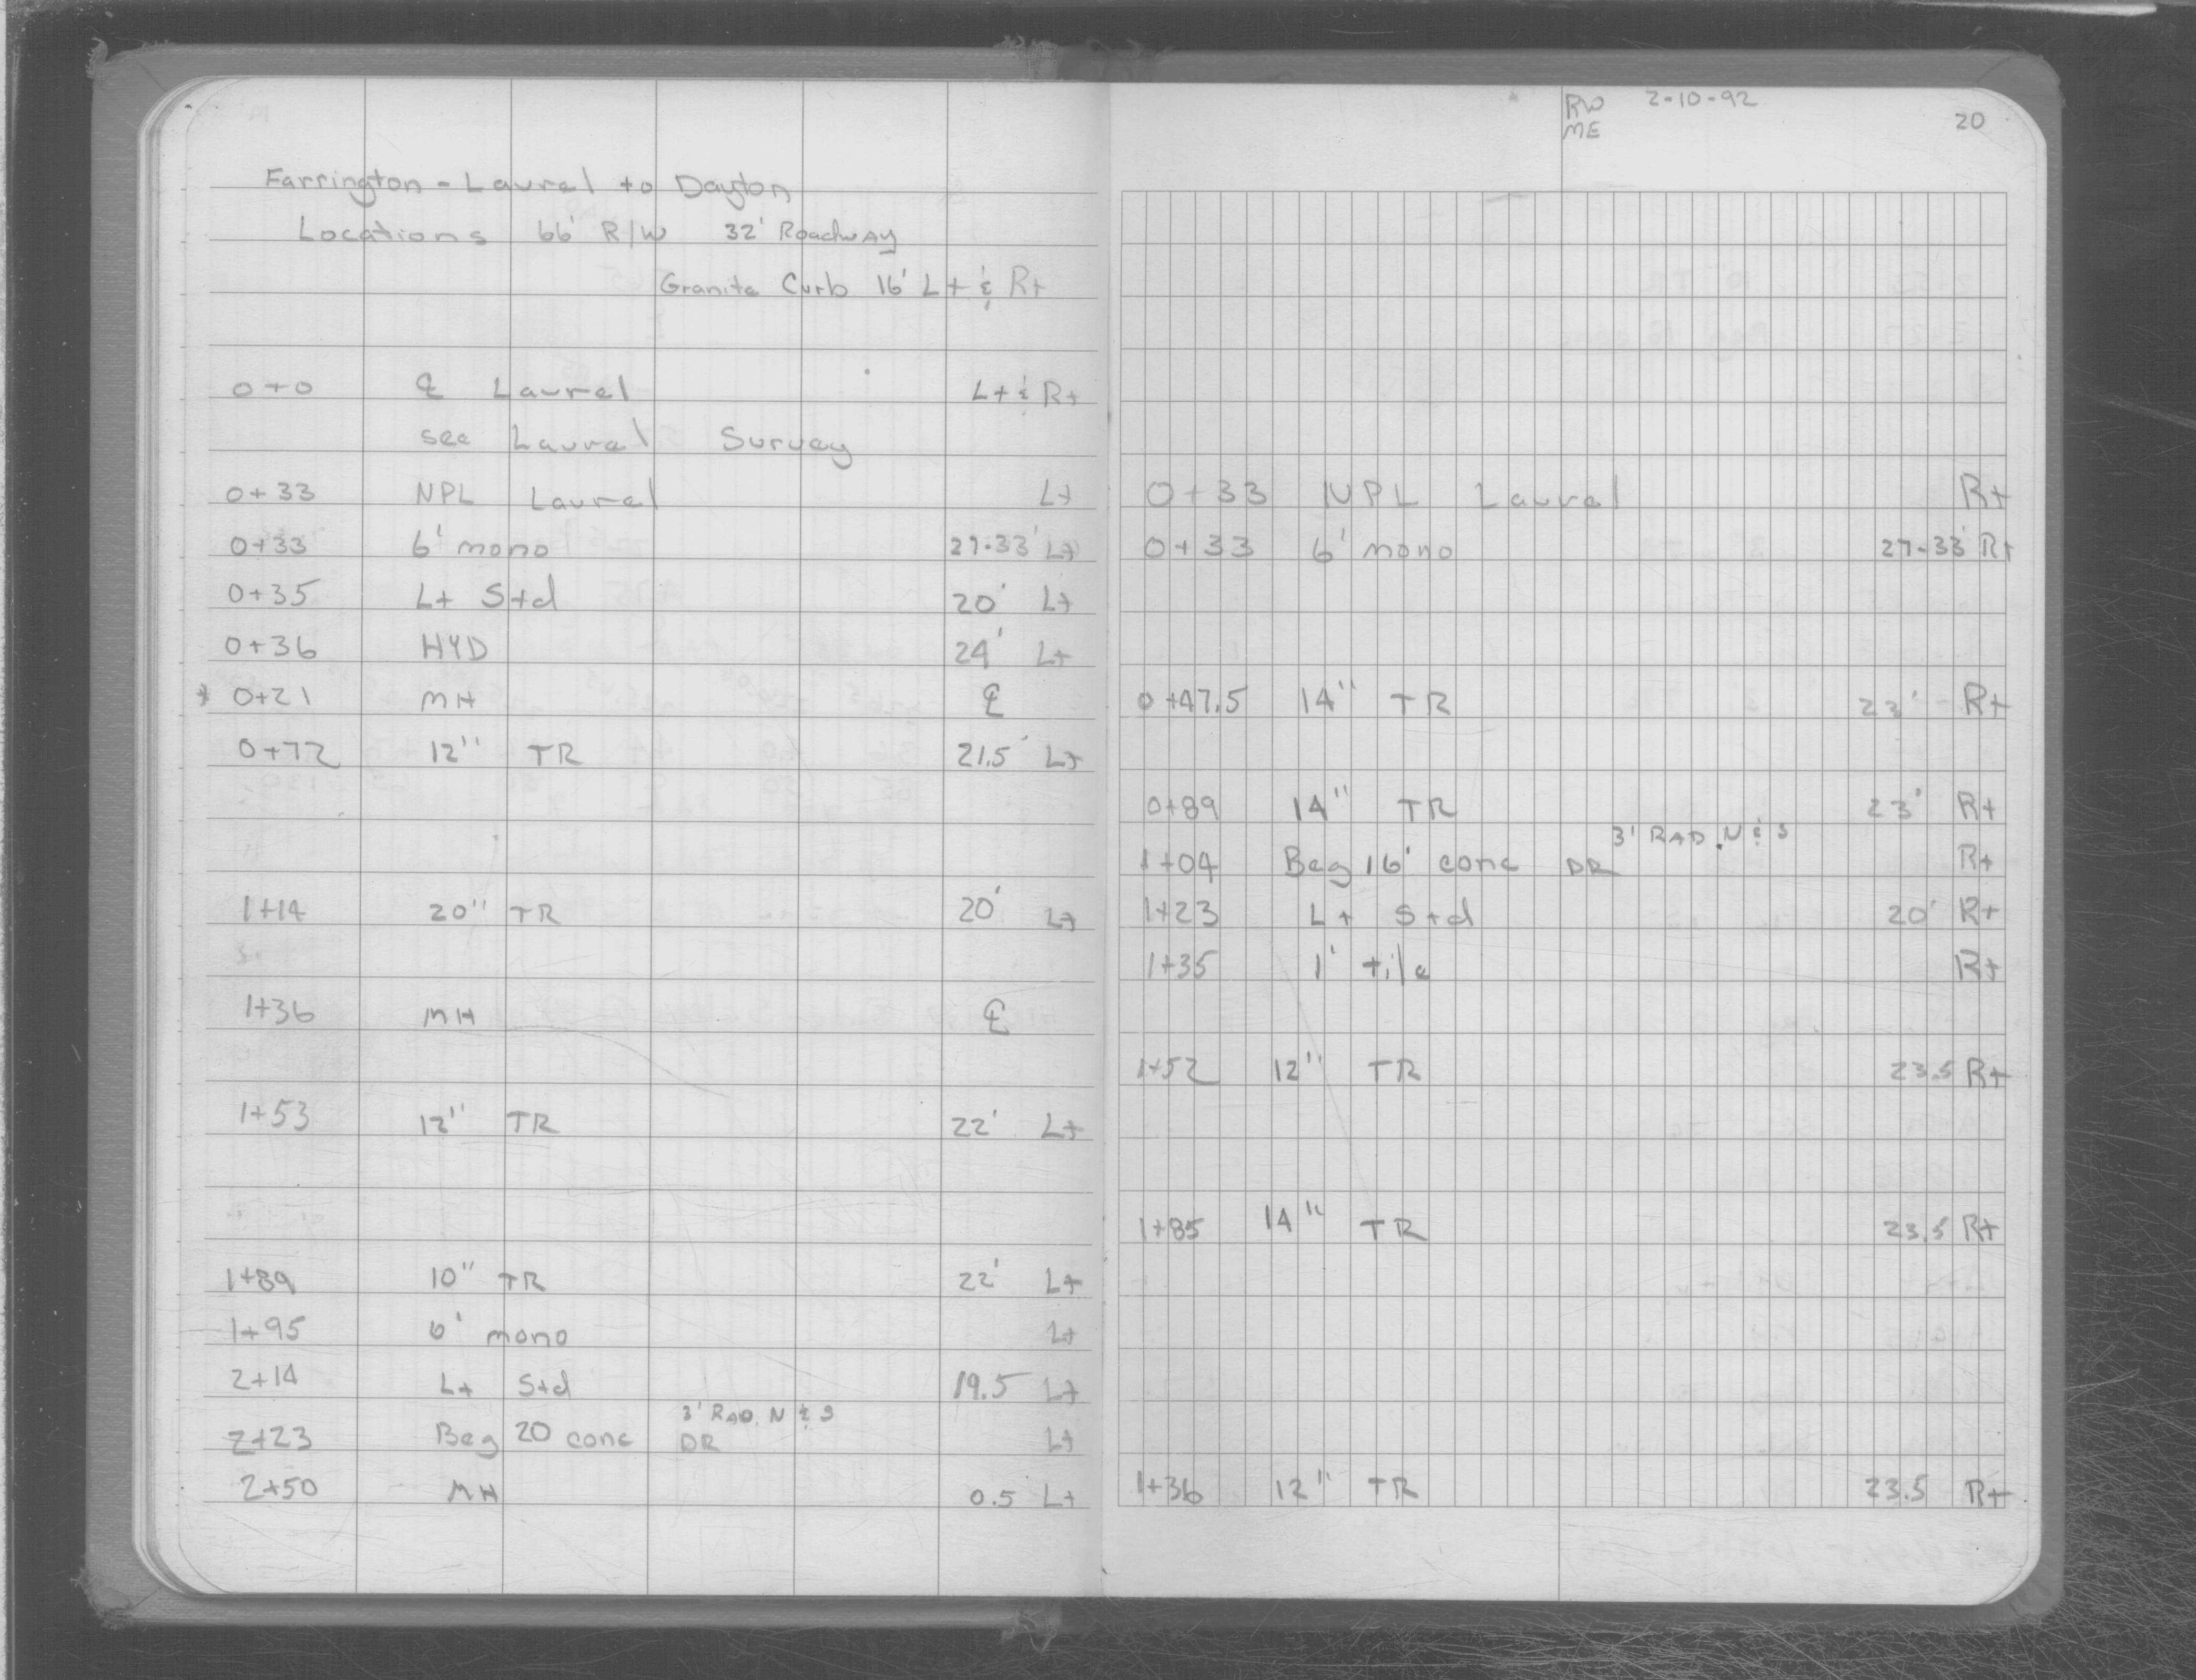 Farrington - Laurel to Dayton
Locations 66' R/W 32' Roadway
Granite Curb 16' Lt & Rt
0+0 ℄ Laurel Lt & Rt
see Laurel Survey
0+33 NPL Laurel Lt
0+33 6' mono 27-33' Lt
0+35 Lt Std 20' Lt
0+36 HYD 24' Lt
* 0+21 MH ℄
0+72 12" TR 21.5' Lt
1+14 20" TR 20' Lt
1+36 MH ℄
1+53 12" TR 22' Lt
1+89 10" TR 22' Lt
1+95 6' mono Lt
2+14 Lt Std 19.5 Lt
3' RAD. N & S
2+23 Beg 20 conc DR Lt
2+50 MH 0.5 Lt
RW 2-10-92
ME
20
0+33 NPL Laurel Rt
0+33 6' mono 27-33' Rt
0+47.5 14" TR 23' Rt
0+89 14" TR 23' Rt
3' RAD. N & S
1+04 Beg 16' conc DR Rt
1+23 Lt Std 20' Rt
1+35 1' tile Rt
1+52 12" TR 23.5 Rt
1+85 14" TR 23.5 Rt
1+36 12" TR 23.5 Rt